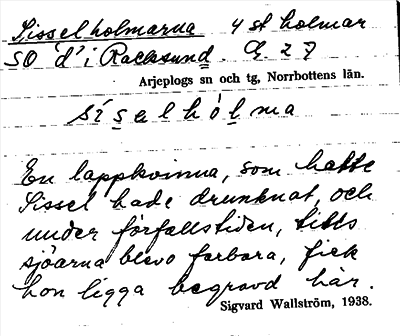 Sisselholmarna 4 st holmar
SO d' i Racksund. G 27
Arjeplogs sn och tg, Norrbottens län.
síselhòlma
En lappkvinna, som hette
Sissel hade drunknat, och
under förfallstiden, tills
sjöarna blevo farbara, fick
hon ligga begravd här.
Sigvard Wallström, 1938.